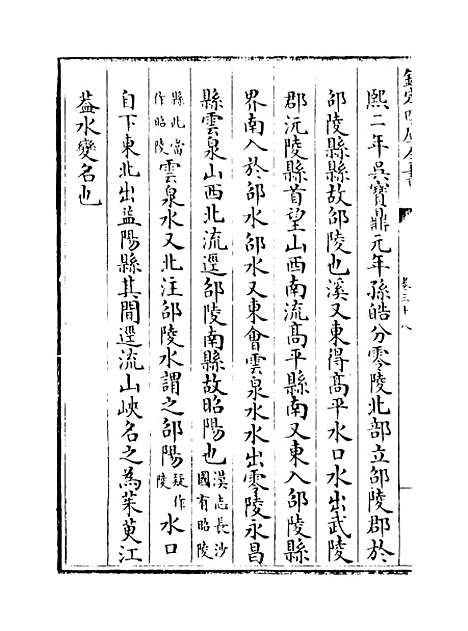 欽定四庫全書
卷三十八
熙二年吳寶鼎元年孫皓分零陵北部立邵陵郡於
邵陵縣縣故邵陵也溪又東得髙平水口水出武陵
郡沅陵縣首望山西南流髙平縣南又東入邵陵縣
界南入於邵水邵水又東會雲泉水水出零陵永昌
縣雲泉山西北流逕邵陵南縣故昭陽也漢志長沙國有昭陵
縣北當作昭陵雲泉水又北注邵陵水謂之邵陽疑作陵水口
自下東北出益陽縣其間逕流山峽名之為茱萸江
葢水變名也